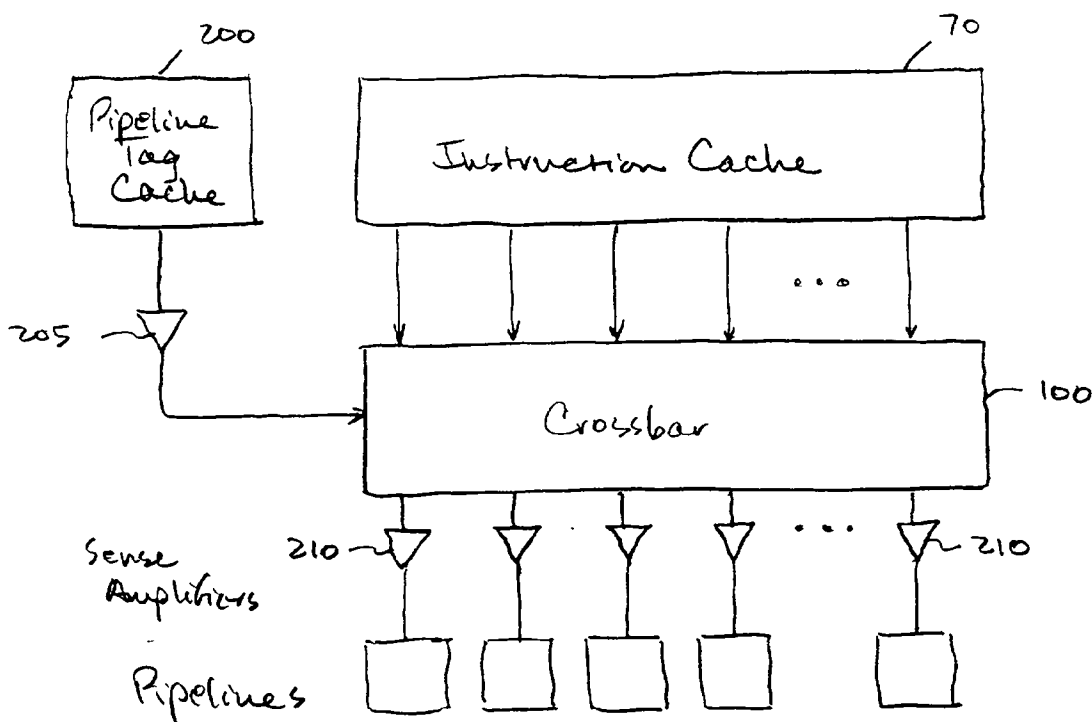 200
70
Pipeline
Tag
Cache
Instruction Cache
...
205
100
Crossbar
...
210
210
Sense
Amplifiers
Pipelines